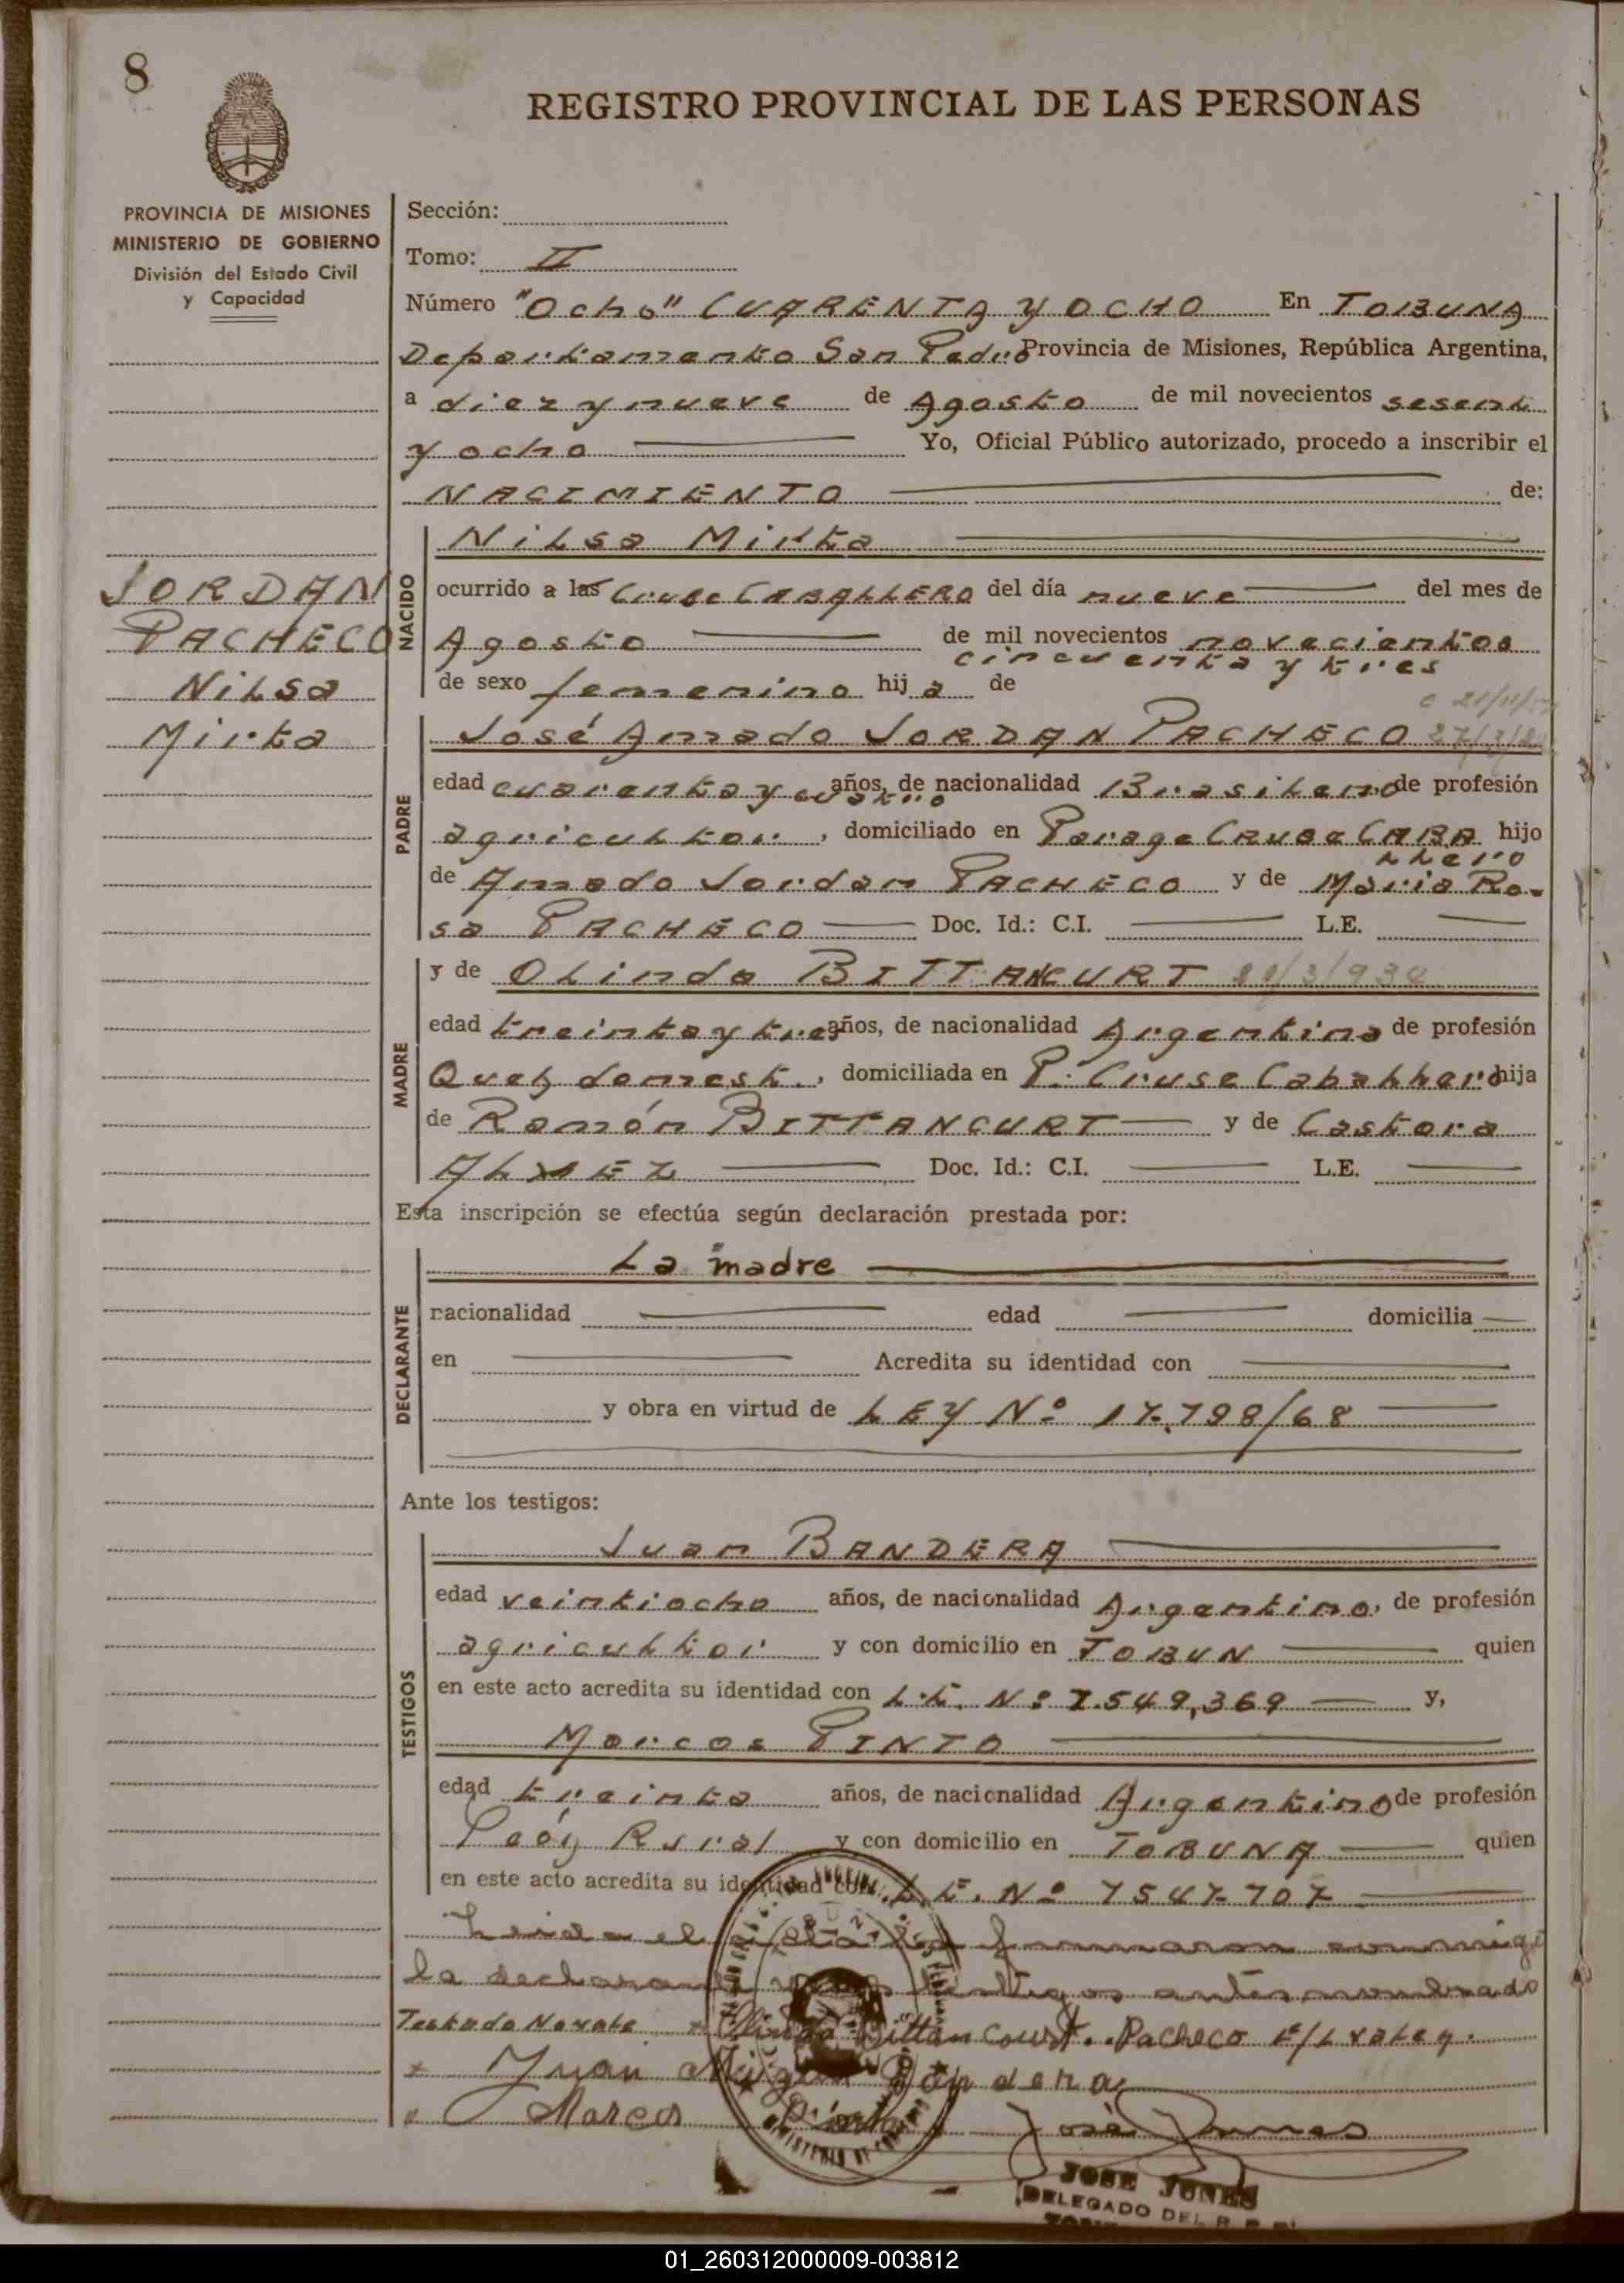 8
REGISTRO PROVINCIAL DE LAS PERSONAS
PROVINCIA DE MISIONES
MINISTERIO DE GOBIERNO
División del Estado Civil
y Capacidad
JORDAN
PACHECO
Nilsa
Mirta
Sección:
Tomo: II
Número "Ocho" CUARENTA Y OCHO En TOBUNA
Departamento San Pedro Provincia de Misiones, República Argentina,
a diez y nueve de Agosto de mil novecientos sesent
y ocho Yo, Oficial Público autorizado, procedo a inscribir el
NACIMIENTO de:
NACIDO
Nilsa Mirta
ocurrido a las Cruse CABALLERO del día nueve del mes de
Agosto de mil novecientos novecientos
cincuenta y tres
de sexo femenino hij a de
PADRE
José Amado JORDAN PACHECO
edad cuarenta y cuatro años, de nacionalidad Brasilero de profesión
agricultor, domiciliado en Parage CRUSE CABA hijo
llero
de Amado Jordan PACHECO y de Maria Ro-
sa PACHECO Doc. Id.: C.I. L.E.
MADRE
y de Olinda BITTANCURT
edad treinta y tres años, de nacionalidad Argentina de profesión
Queh domest., domiciliada en P. Cruse Caballero hija
de Ramón BITTANCURT y de Castora
Doc. Id.: C.I. L.E.
Esta inscripción se efectúa según declaración prestada por:
DECLARANTE
La madre
nacionalidad edad domicilia
en Acredita su identidad con
y obra en virtud de LEY Nº 17.798/68
Ante los testigos:
TESTIGOS
Juan BANDERA
edad veintiocho años, de nacionalidad Argentino, de profesión
agricultor y con domicilio en TOBUN quien
en este acto acredita su identidad con L.E. Nº 7.549,369 y,
Marcos PINTO
edad treinta años, de nacionalidad Argentino de profesión
Peón Rural y con domicilio en TOBUNA quien
en este acto acredita su identidad con L.E. Nº 7547707
Leida el acta la firmaron conmigo
la declarante y los testigos antes nombrado
Testado Olinda Bittancourt. Pacheco
Juan Miguel Bandera
Marcos Pinto José Junes
JOSE JUNES
DELEGADO DEL R. P. P.
01_260312000009-003812